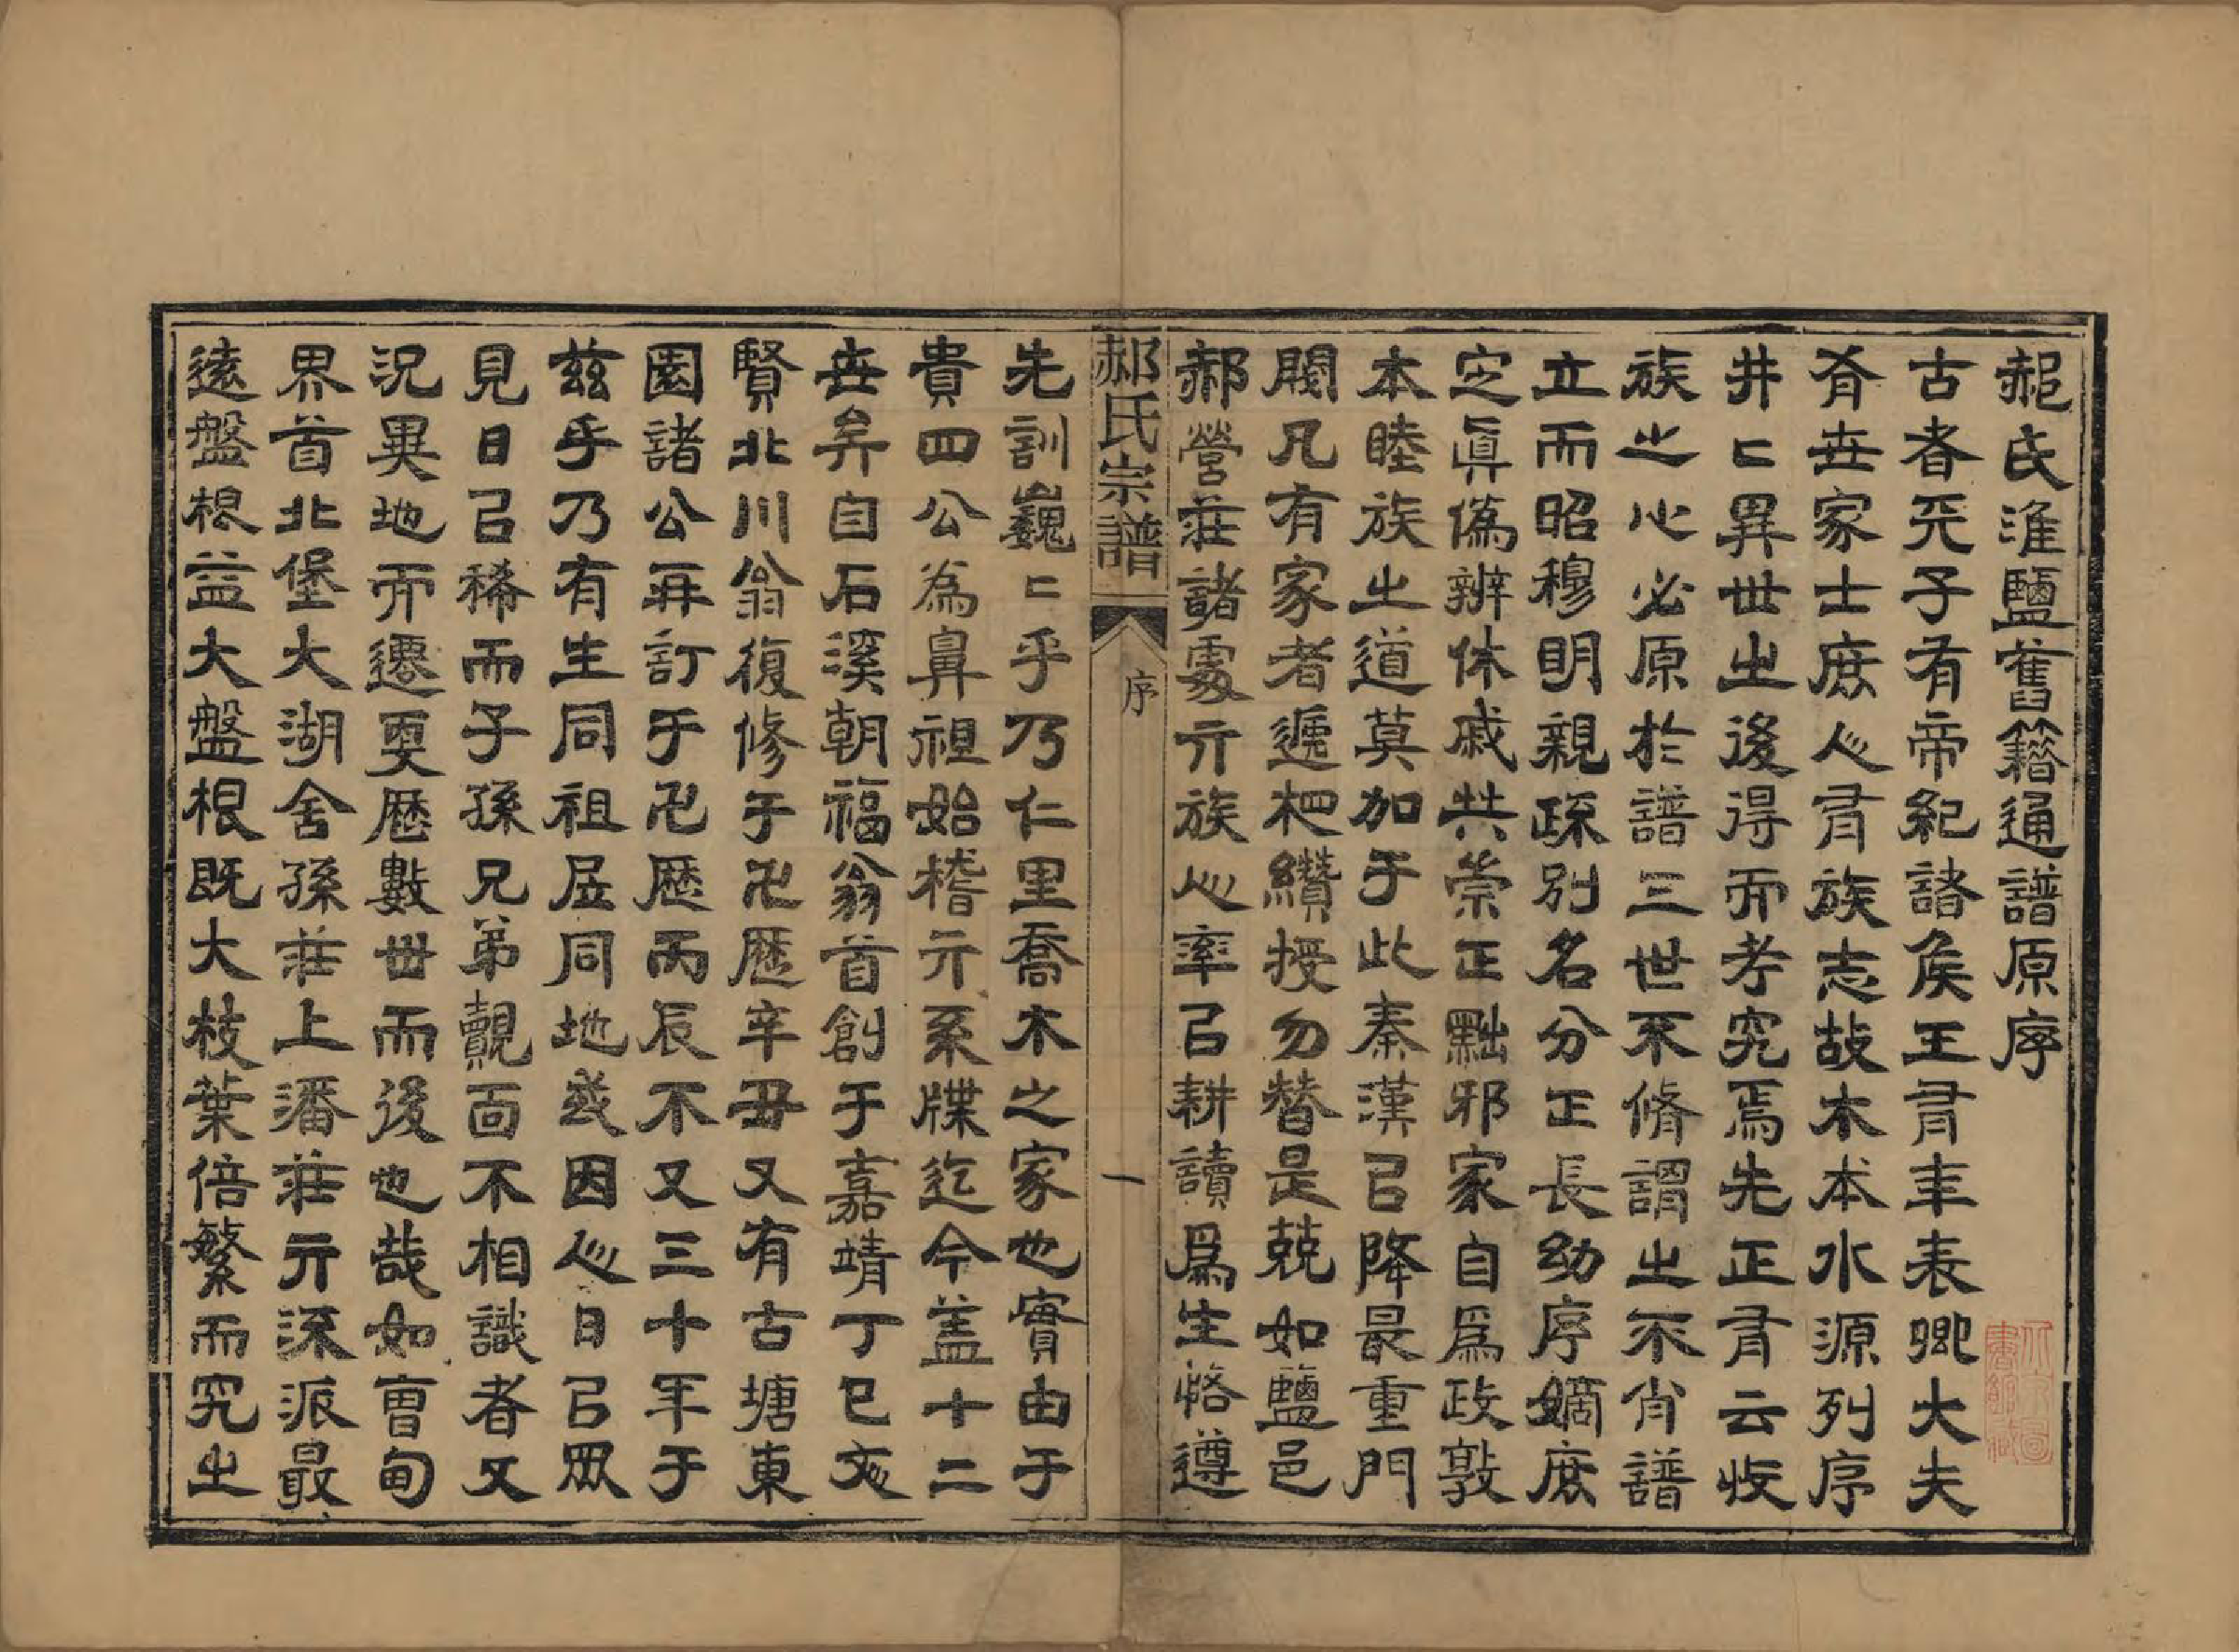 郝氏淮鹽舊籍通譜原序
古者天子有帝紀諸矦王有年表卿大夫
有世家士庶人有族志故木本水源列序
井匕異世之後得而考究焉先正有云收
族之心必原於譜三世不脩謂之不肖譜
立而昭穆明親疏別名分正長幼序嫡庶
定眞僞辨休戚共崇正黜邪家自爲政敦
本睦族之道莫加于此秦漢㠯降最重門
閥凡有家者遞䎱纘授勿替是兢如鹽邑
郝營莊諸處亓族人率㠯耕讀爲生恪遵
郝氏宗譜
序
一
先訓巍匕乎乃仁里喬木之家也實由于
貴四公為鼻祖始稽亓系牒迄今盖十二
世矣自石溪朝福翁首創于嘉靖丁巳亥
賢北川翁復修于卍歷辛丑又有古塘東
園諸公再訂于卍歷丙辰不又三十年于
茲乎乃有生同祖居同地或因人日㠯眾
見日㠯稀而子孫兄弟覿面不相識者又
況異地而遷更歷數世而後也哉如曹甸
界首北堡大湖舍孫莊上潘莊亓流派最
遠盤根益大盤根既大枝葉倍繁而究之